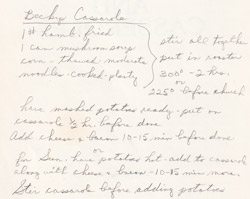 Becky Casserole
1# hamb. fried
1 can mushroom soup
corn - thawed - moderate
noodles - cooked - plenty
stir all together
put in roaster
300° - 2 hrs.
or
225° before church
have mashed potatoes ready - put on
casserole ½ hr. before done
Add cheese & bacon 10-15 min before done
or
for Sun. have potatoes hot - add to casserole
along with cheese & bacon - 10-15 min more.
Stir casserole before adding potatoes